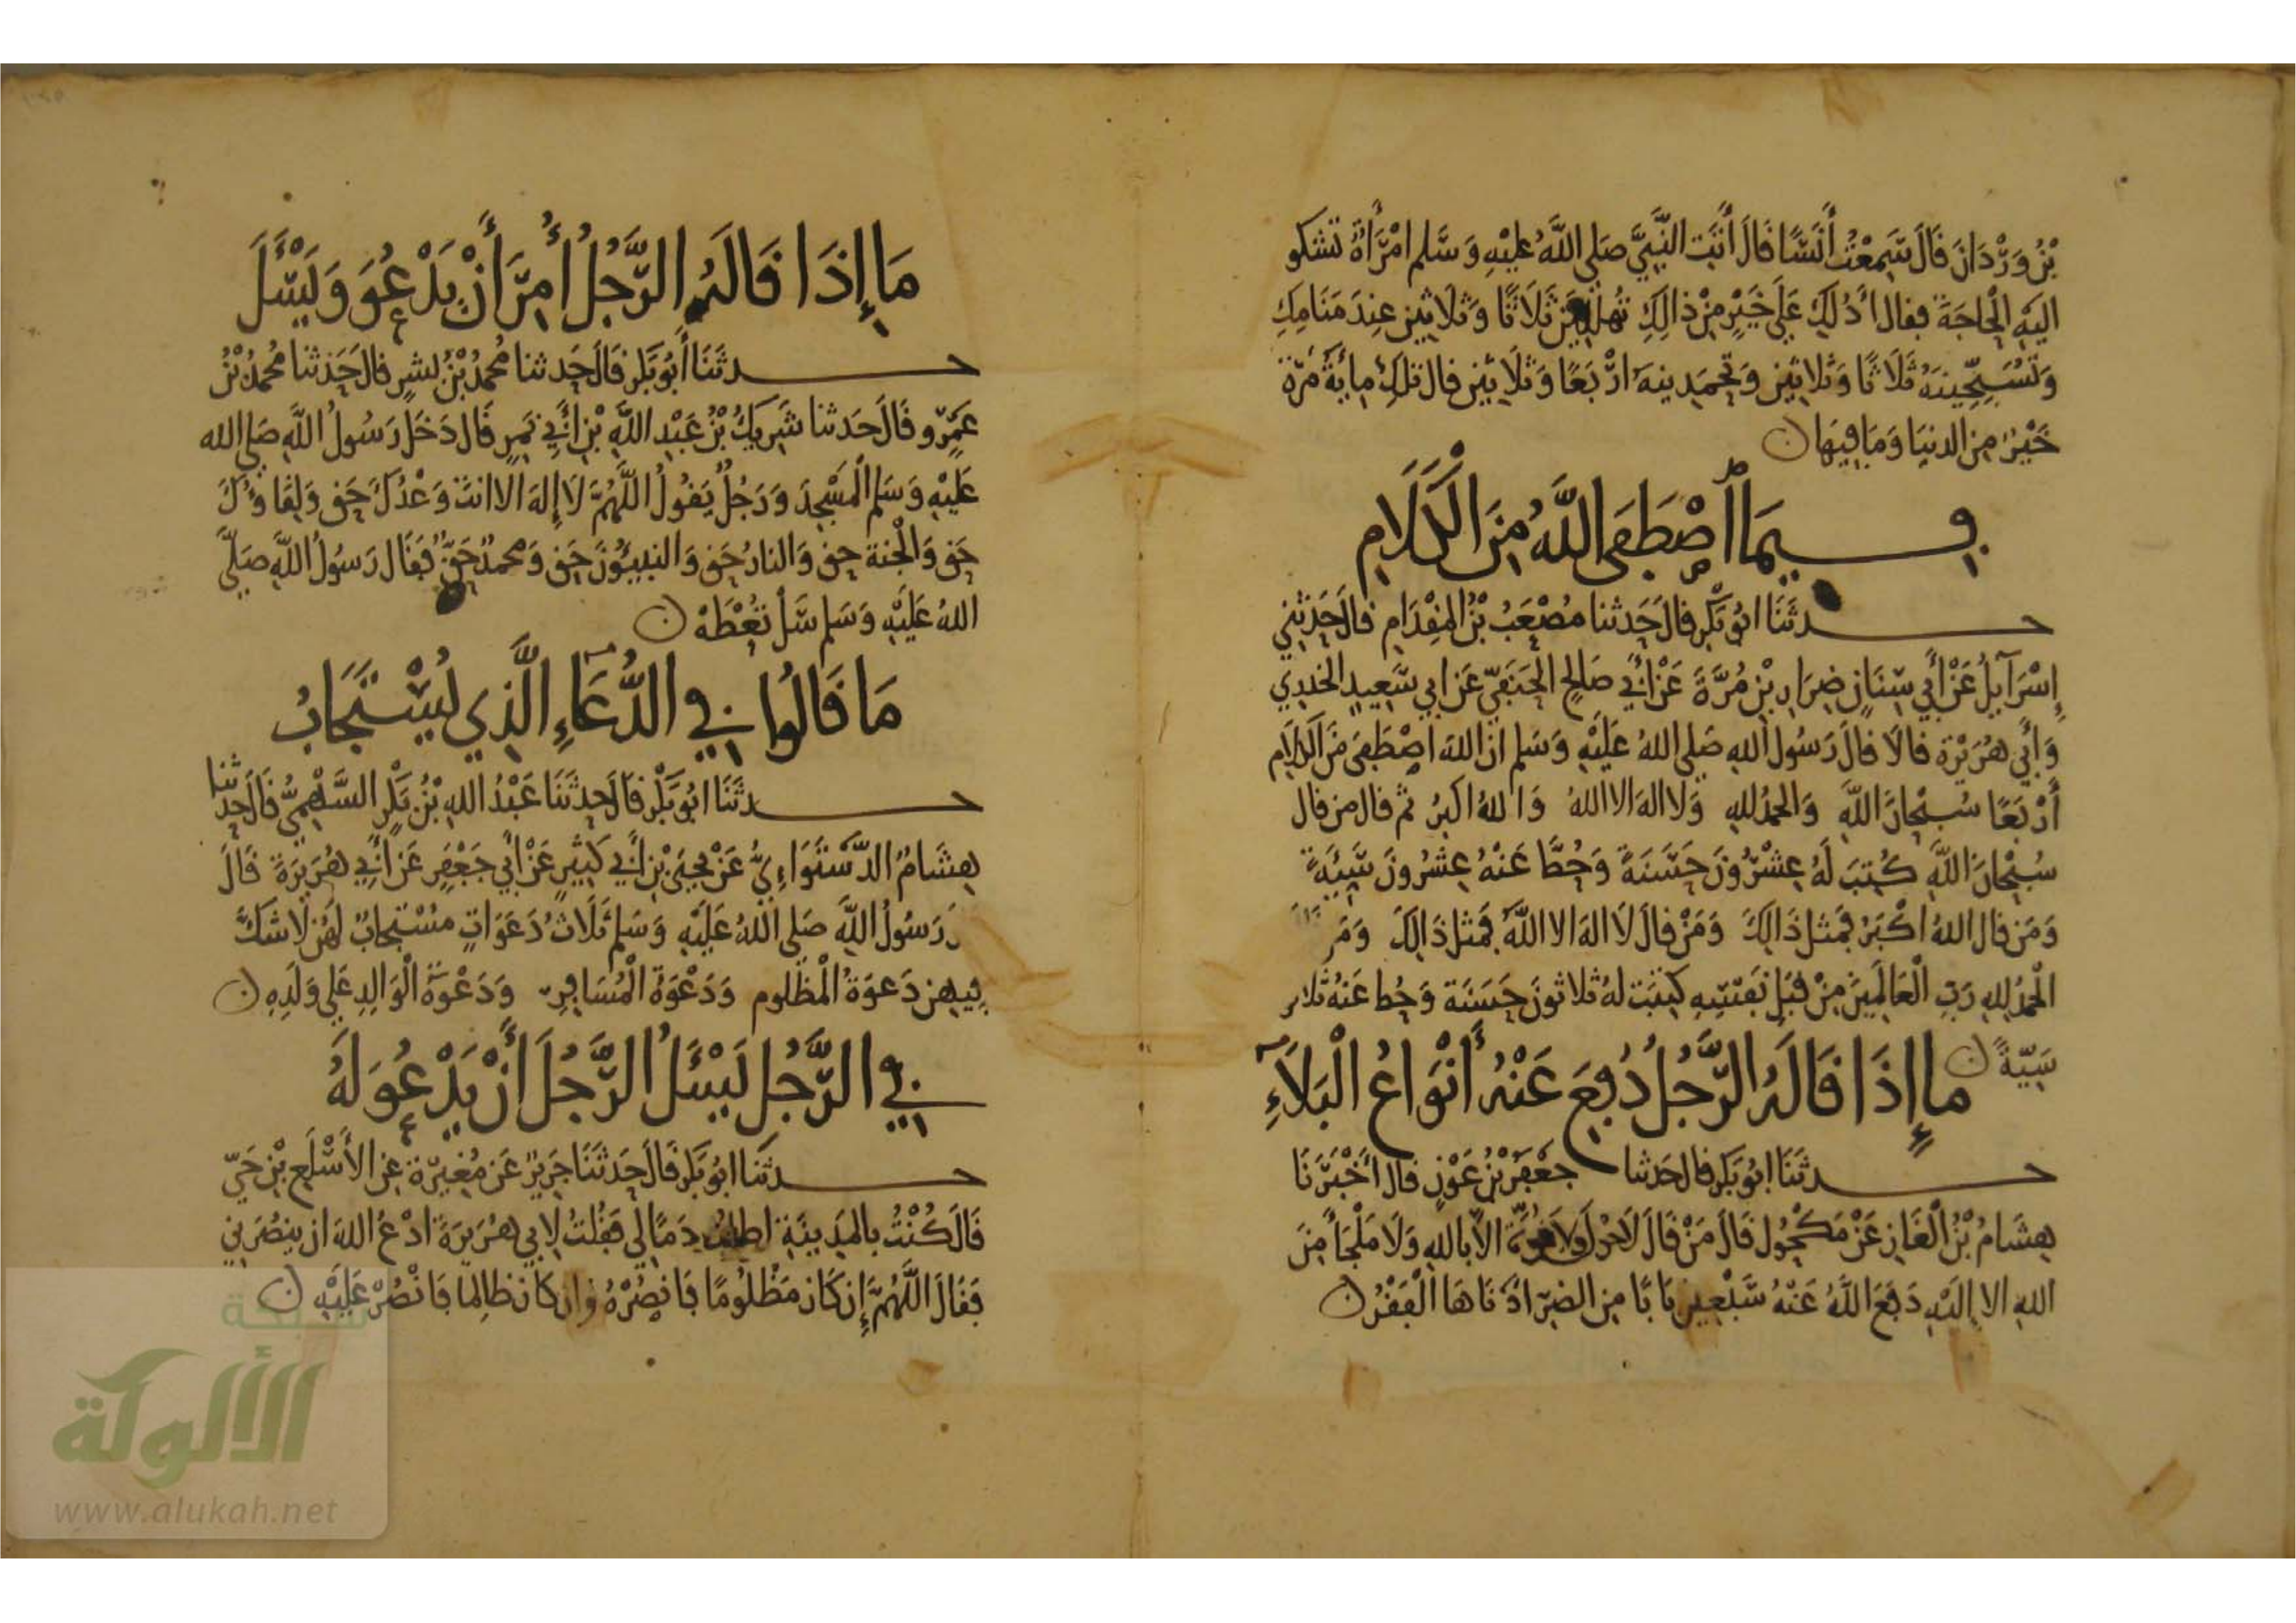 بْنُ وَرْدَانَ قَالَ سَمِعْتُ أَنَسًا قَالَ أَتَتِ النَّبِيَّ صَلى اللَّهُ عَلَيْهِ وَسَّلم امْرَأَةٌ تَشكو
اليَهِ الْحَاجَةَ فقال أَدُلكِ عَلَى خَيْرٍ مِنْ ذالِكِ تُهلليِنَ ثَلَاثًا وَثلاثِين عِندَ مَنَامِكِ
وَتُسَبِّحِينَهُ ثَلَاثًا وَثلاثِين وَتَحْمَدِينهَ ارْبَعًا وَثَلَاثِين قال تلكِ مِايَةُ مَرَّة
خَيْرٌ مِنَ الدنيَا وَمَا فِيهَا ن
فِيمَا اصْطَفَى اللَّهُ مِنَ الْكَلَامِ
حدثَنَا ابُو بَكْرٍ قالَ حَدثنا مُصْعَبُ بْنُ المِقْدَامِ قالَ حَدثَنِي
إِسْرَآيِلُ عَنْ أَبِي سِنَانٍ ضِرَارِ بْنِ مُرَّةَ عَنْ أَبِي صَالِحٍ الْحَنَفِيّ عَن ابي سَعِيدٍ الخدري
وَأَبِي هُرَيْرَة قالا قَالَ رَسُول الله صَلى اللهُ عَلَيْهِ وَسَلم ان اللهَ اصْطَفَى مِنَ الكَلَامِ
أَرْبَعًا سُبْحَانَ اللَّهِ وَالحمْدُ للهِ وَلا اله الا اللهُ وَاللهُ اكبرُ ثم قال من قال
سُبْحَانَ اللَّهِ كُتِبَ لَهُ عِشْرُونَ حَسَنَةً وَحُطَّ عَنْهُ عِشْرُونَ سَيِّئَةً
وَمَن قال اللهُ اكْبَرُ فمثل ذَالِكَ وَمَنْ قالَ لَا الهَ الا اللَّهُ فمثل ذَالِكَ وَمَن
الْحَمْدُ للهِ رَبِّ الْعَالَمِينَ مِنْ قِبَلِ نَفْسِهِ كتِبَت لهُ ثلاثونَ حَسَنَة وَحُط عَنهُ ثلاثون
سَيّئةً ن مَا إِذَا قَالَهُ الرَّجُلُ دُفِعَ عَنْهُ أَنْوَاعُ الْبَلَاءِ
حدثَنَا ابُو بَكر قال حَدثنا جَعْفَرُ بْنُ عَوْنٍ قال أَخْبَرَنَا
هِشَامُ بْنُ الْغَازِ عَنْ مَكْحُولٍ قَالَ مَنْ قَالَ لَا حَوْل وَلَا قوَّةَ الا بالله وَلَا مَلْجَأَ مِنَ
اللهِ الا اليْهِ دَفَعَ اللَّهُ عَنْهُ سَبْعِينَ بَابًا مِن الضرّ ادْنَاهَا الْفَقْرُ ن
مَا إِذَا قَالَهُ الرَّجُلُ أُمِرَ أَنْ يَدْعُوَ وَيَسْئَلَ
حدثَنَا أَبُو بَكْرٍ قَالَ حَدثنا مُحمدُ بْنُ بشرٍ قالَ حَدثنا مُحمدُ بْنُ
عَمْرٍو قَالَ حَدثنا شَرِيكُ بْنُ عَبْدِ اللَّهِ بْنِ أَبِي نَمِرٍ قَال دَخَلَ رَسُولُ اللَّهِ صَلى الله
عَلَيْهِ وَسَلم الْمَسْجِدَ وَرَجُلٌ يَقُولُ اللَّهُمَّ لَا إِلَهَ الا انتَ وَعْدُكَ حَق وَلِقَاوُكَ
حَق وَالْجنة حق وَالنارُ حَق وَالنبيُّونَ حَق وَمحمدٌ حَقٌّ فَقَال رَسُولُ اللَّهِ صَلَّى
اللهُ عَلَيْهِ وَسَلم سَلْ تُعْطَهْ ن
مَا قَالُوا فِي الدُّعَاءِ الَّذِي يُسْتَجَابُ
حدثَنَا ابُو بَكْرٍ قَالَ حَدثَنَا عَبْدُ اللهِ بْنُ بَكْرٍ السَّهْمِيُّ قَالَ حَدثنا
هِشَامٌ الدَّسْتَوَاءِيُّ عَنْ يَحْيَى بْنِ أَبِي كَثِيرٍ عَنْ أَبِي جَعْفَرٍ عَن أَبِي هُرَيرَةَ قَالَ
رَسُولُ اللَّهِ صَلى اللهُ عَلَيْهِ وَسَلم ثَلَاثُ دَعَوَاتٍ مسْتجابٌ لَهُن لا شكَّ
فِيهِن دَعوَةُ الْمظلوم وَدَعْوَةُ الْمُسَافِرِ وَدَعْوَةُ الْوَالِدِ عَلَى وَلَدِهِ ن
فِي الرَّجُلِ يَسْئَلُ الرَّجُلَ أَنْ يَدْعُوَ لَهُ
حدثَنَا ابُو بَكرٍ قَالَ حَدثَنَا جَرِيرٌ عَن مُغِيرَة عَنِ الأَسْلَعِ بْنِ حَيّ
قَالَ كُنْتُ بالمدِينَةِ اطلُبُ دَمًا لِي فَقُلتُ لِابِي هُرَيرَةَ ادْعُ اللهَ ان ينصُرَنِي
فَقَالَ اللَّهُمَّ إِن كَانَ مَظْلُومًا فَانْصُرْهُ وَان كانَ ظالِمًا فَانْصُرْ عَلَيْهِ ن
شبكة
الألوكة
www.alukah.net